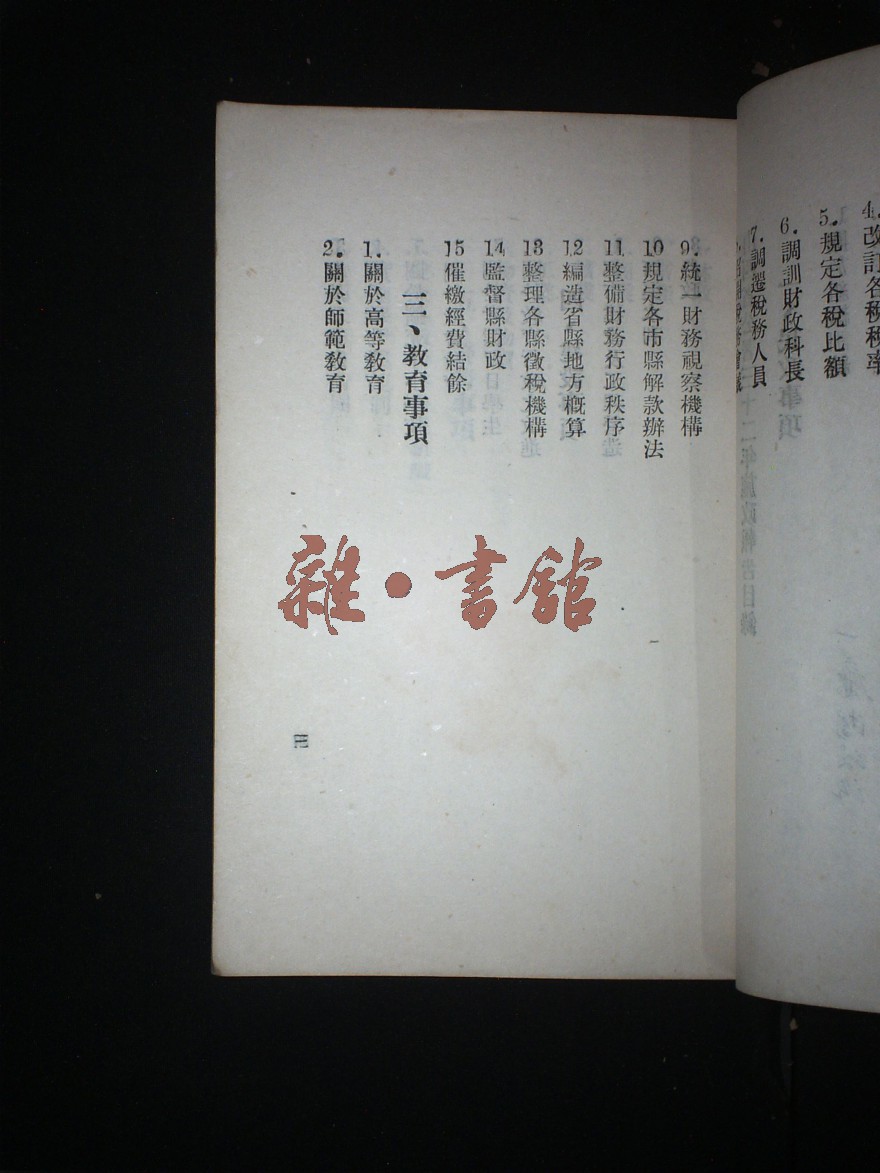 4.改訂各稅稅率
5.規定各稅比額
6.調訓財政科長
7.調遷稅務人員
9.統一財務視察機構
10規定各市縣解款辦法
11整備財務行政秩序
12編造省縣地方概算
13整理各縣徵稅機構
14監督縣財政
15催繳經費結餘
三、教育事項
1.關於高等教育
2.關於師範教育
三
雜·書館